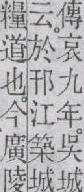 傳哀九年吳城
云於邗江築城
糧道也今廣陵